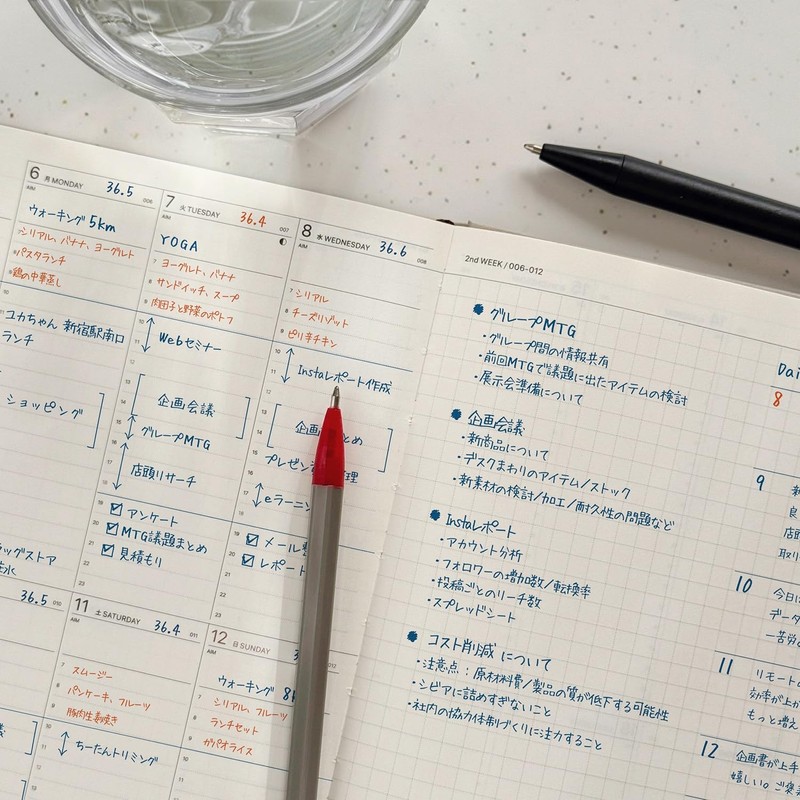 6 月 MONDAY 36.5 006
AIM
ウォーキング 5km
シリアル、バナナ、ヨーグルト
パスタランチ
鶏の中華蒸し
ユカちゃん 新宿駅南口
ランチ
ショッピング
7 火 TUESDAY 36.4 007
AIM
YOGA
7 ヨーグルト、バナナ
8 サンドイッチ、スープ
9 肉団子と野菜のポトフ
10
11 Webセミナー
12
13
14 企画会議
15
16 グループMTG
17
18 店頭リサーチ
19
20 ☑ アンケート
21 ☑ MTG議題まとめ
22 ☑ 見積もり
23
8 水 WEDNESDAY 36.6 008
AIM
7 シリアル
8 チーズリゾット
9 ピリ辛チキン
10
11 Instaレポート作成
12
13
14 企画
とめ
15 プレゼン
理
16
17 eラーニン
18
19 ☑ メール
20
21 ☑ レポート
22
23
ッグストア
36.5 010
11 土 SATURDAY 36.4 011
AIM
7 スムージー
8 パンケーキ、フルーツ
9 豚肉生姜焼き
10
11 ちーたんトリミング
12
12 日 SUNDAY 3
012
AIM
ウォーキング 8
7 シリアル、フルーツ
8 ランチセット
9 ガパオライス
10
11
2nd WEEK / 006-012
● グループMTG
・グループ間の情報共有
・前回MTGで議題に出たアイテムの検討
・展示会準備について
● 企画会議
・新商品について
・デスクまわりのアイテム/ストック
・新素材の検討/加工/耐久性の問題など
● Instaレポート
・アカウント分析
・フォロワーの増加数/転換率
・投稿ごとのリーチ数
・スプレッドシート
● コスト削減 について
・注意点：原材料費/製品の質が低下する可能性
・シビアに詰めすぎないこと
・社内の協力体制づくりに注力すること
Dai
8
9 新
良
店頭
取り
10 今日は
データ
一苦労
11 リモート
効率が上が
もっと増え
12 企画書が上手
嬉しい。ご褒